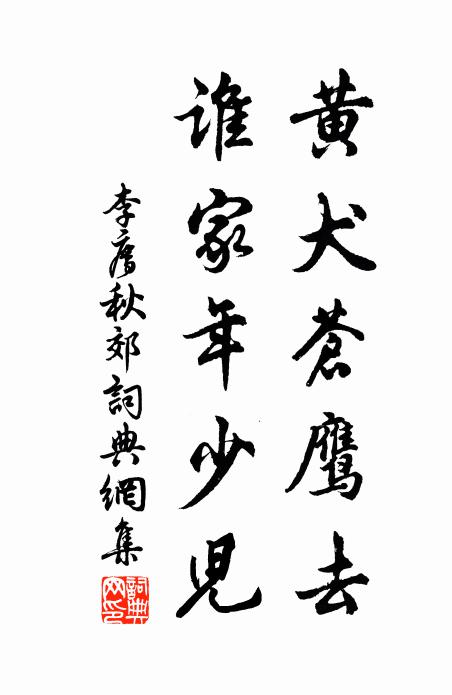 黄犬蒼鷹去
誰家年少兒
李廌秋郊詞典網集
詞典網印